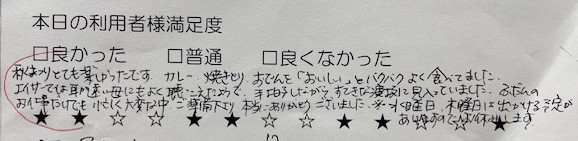 本日の利用者様満足度
□良かった □普通 □良くなかった
秋まつりとても楽しかったです。カレー、焼きとり、おでんを「おいしい」とパクパクよく食べてました。
エイサーでは耳が遠い母にもよく聴こえたようで、手拍子しながら、すてきな演技に見入っていました。ふだんの
お仕事だけでも忙しく大変な中、ご準備下さり本当にありがとうございました。水曜日、木曜日に出かける予定が
ありますので お休みします
★ ★ ☆ ☆ ★ ★ ☆ ☆ ★ ★ ☆ ☆ ★